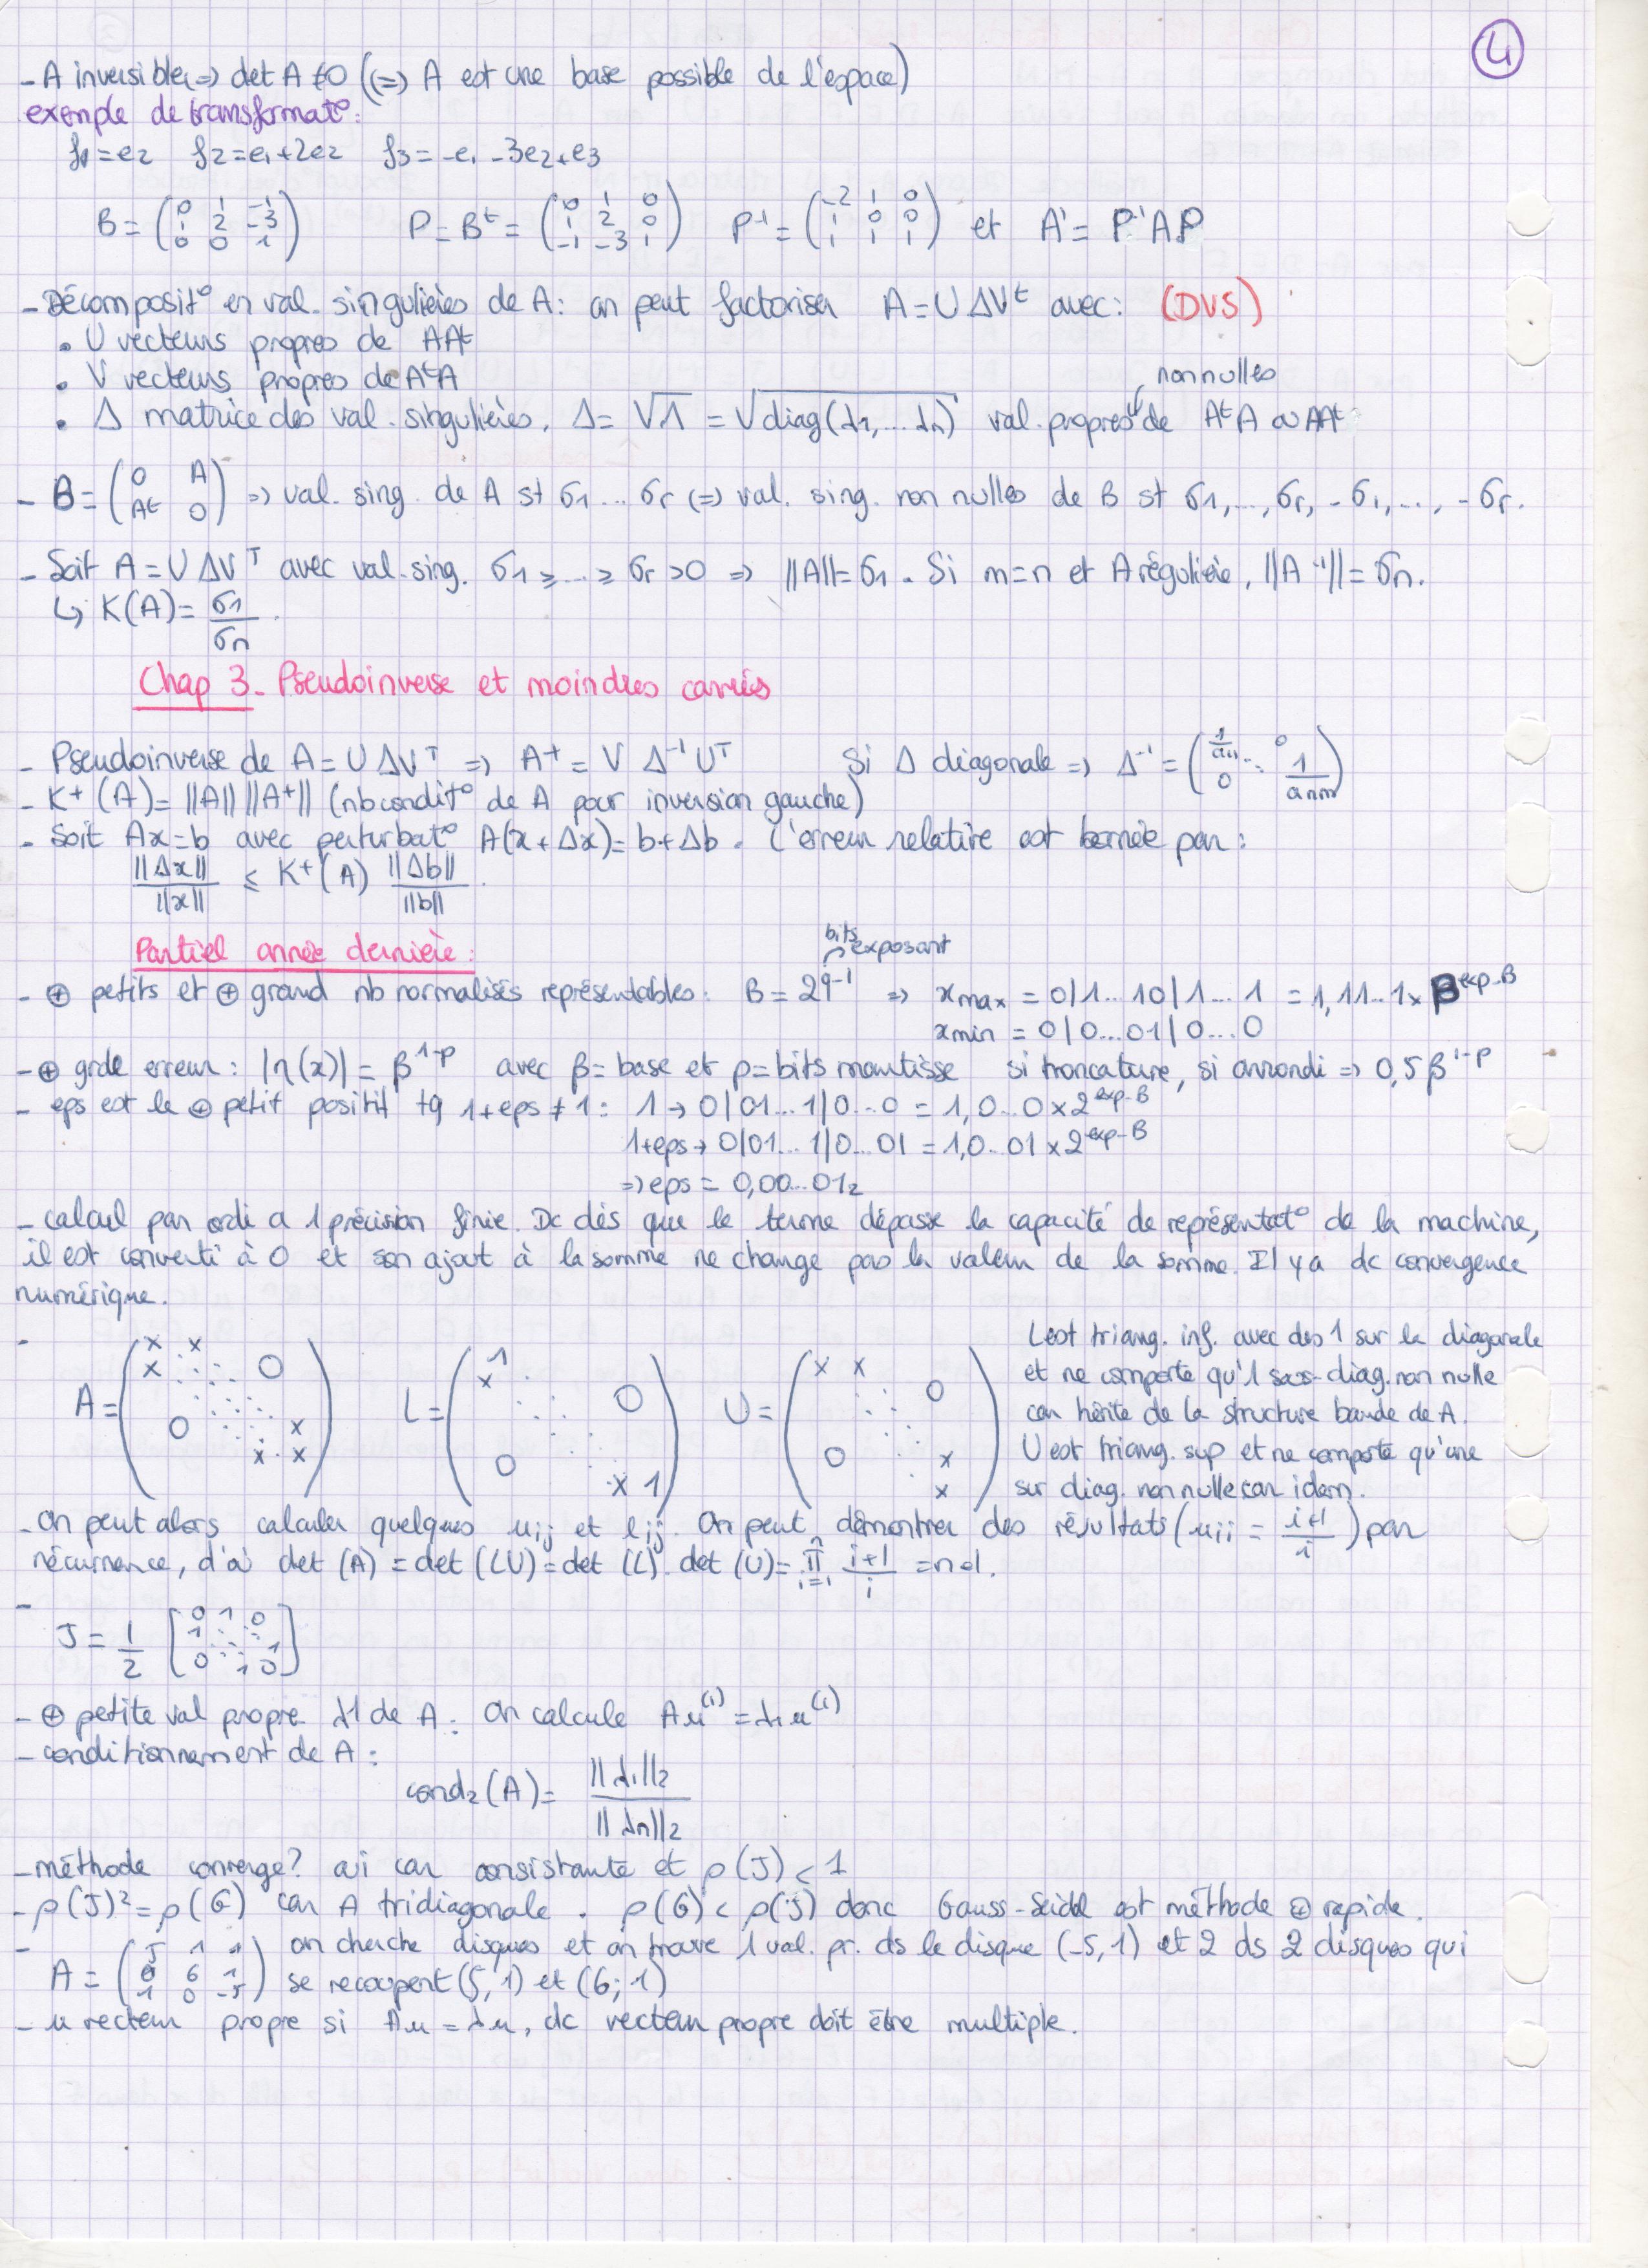 4
- A inversible => det A ≠ 0 (<=> A est une base possible de l'espace)
exemple de transformat°:
f1 = e2   f2 = e1 + 2e2   f3 = -e1 - 3e2 + e3
B = (0 1 -1 ; 1 2 -3 ; 0 0 1)   P = B^t = (0 1 0 ; 1 2 0 ; -1 -3 1)   P^-1 = (-2 1 0 ; 1 0 0 ; 1 1 1) et A' = P^-1 A P
- Décomposit° en val. singulières de A: on peut factoriser A = U Δ V^t avec: (DVS)
• U vecteurs propres de AA^t
• V vecteurs propres de A^tA
non nulles
• Δ matrice des val. singulières. Δ = √Λ = √diag(λ1,...λn) val. propres de A^tA ou AA^t
- B = (0 A ; A^t 0) => val. sing. de A st σ1 ... σr <=> val. sing. non nulles de B st σ1,...,σr, -σ1,..., -σr.
- Soit A = U Δ V^T avec val. sing. σ1 ≥ ... ≥ σr > 0 => ||A|| = σ1. Si m=n et A régulière, ||A^-1|| = σn.
↳ K(A) = σ1/σn.
Chap 3 - Pseudoinverse et moindres carrés
- Pseudoinverse de A = U Δ V^T => A^+ = V Δ^-1 U^T   Si Δ diagonale => Δ^-1 = (1/a11 0 ; 0 1/anm)
- K^+(A) = ||A|| ||A^+|| (nb condit° de A pour inversion gauche)
- Soit Ax = b avec perturbat° A(x + Δx) = b + Δb. L'erreur relative est bornée par:
||Δx||/||x|| ≤ K^+(A) ||Δb||/||b||.
Partiel année dernière:
bits exposant
- ⊕ petits et ⊕ grand nb normalisés représentables: B = 2^q-1 => xmax = 0|1...10|1...1 = 1,11...1 × β^exp-B
xmin = 0|0...01|0...0
- ⊕ grde erreur: |η(x)| = β^1-p avec β = base et p = bits mantisse si troncature, si arrondi => 0,5 β^1-p
- eps est le ⊕ petit positif tq 1+eps ≠ 1: 1 → 0|01...1|0...0 = 1,0...0 × 2^exp-B
1+eps → 0|01...1|0...01 = 1,0...01 × 2^exp-B
=> eps = 0,00...01₂
- calcul par ordi a 1 précision finie. Dc dès que le terme dépasse la capacité de représentat° de la machine,
il est converti à 0 et son ajout à la somme ne change pas la valeur de la somme. Il y a dc convergence
numérique.
- A = (x x 0 ; x ... x ; 0 x x)   L = (1 0 ; x ... ; 0 x 1)   U = (x x 0 ; ... x ; 0 x)
L est triang. inf. avec des 1 sur la diagonale
et ne comporte qu'1 sous-diag. non nulle
car hérite de la structure bande de A.
U est triang. sup et ne comporte qu'une
sur diag. non nulle car idem.
- On peut alors calculer quelques uij et lij. On peut démontrer des résultats (uii = i+1/i) par
récurrence, d'où det (A) = det (LU) = det (L). det (U) = ∏ i=1 n i+1/i = n+1.
- J = 1/2 [0 1 0 ; 1 ... 1 ; 0 1 0]
- ⊕ petite val propre λ1 de A: On calcule Au^(1) = λ1u^(1)
- conditionnement de A:
cond₂(A) = ||λ1||₂/||λn||₂
- méthode converge? oui car consistante et ρ(J) < 1
- ρ(J)² = ρ(G) car A tridiagonale. ρ(G) < ρ(J) donc Gauss-Seidel est méthode ⊕ rapide.
- A = (5 1 1 ; 0 6 1 ; 1 0 -5) on cherche disques et on trouve 1 val. pr. ds le disque (-5,1) et 2 ds 2 disques qui
se recoupent (5,1) et (6;1)
- u vecteur propre si Au = λu, dc vecteur propre doit être multiple.